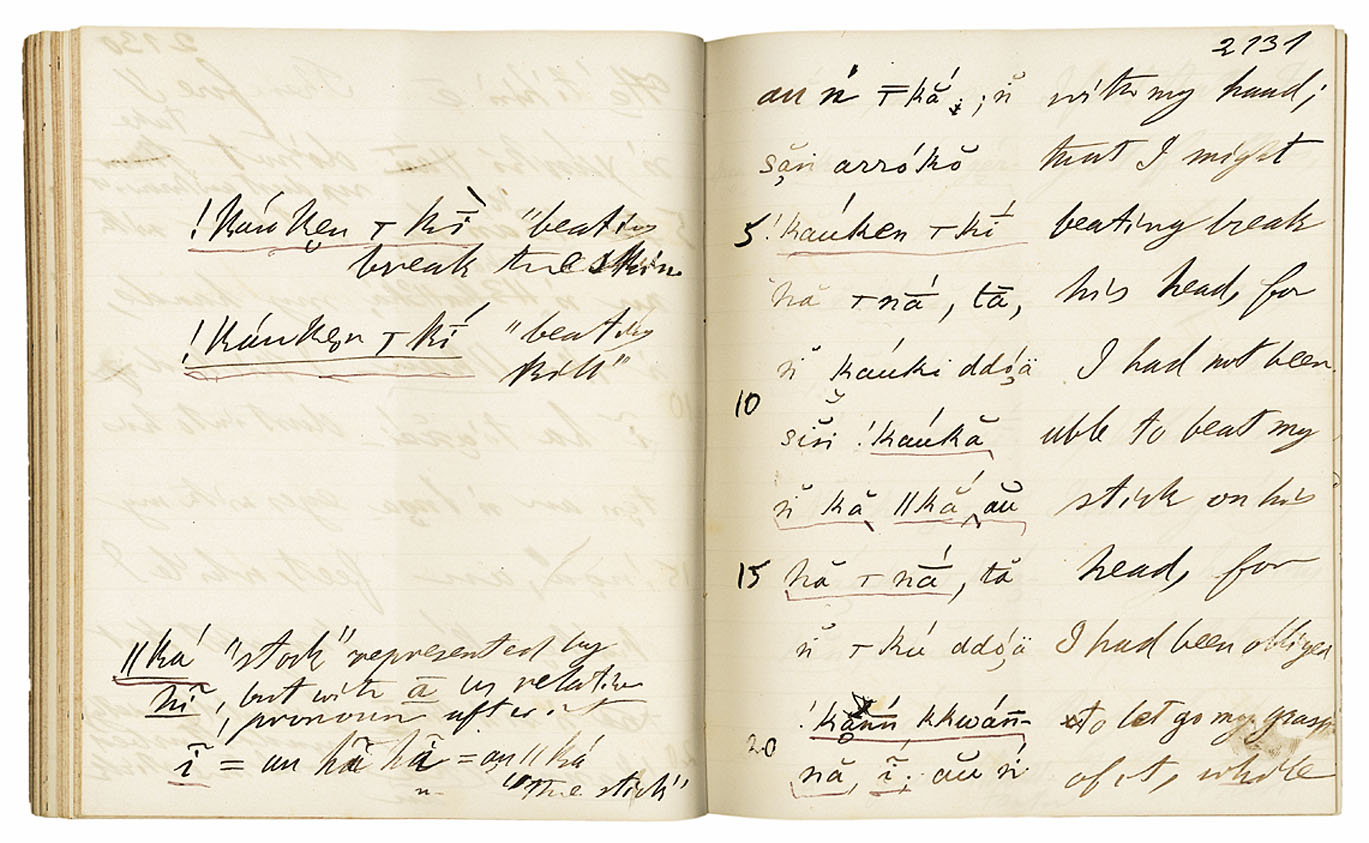 !káúkẹn ⊤ kī̀ "beating
break the skin
!káúkẹn ⊤ kī́ "beating
kill"
ǁká "stick" represented by
hī̃, but with ā as relative
pronoun after it
ī̃ = au hã hĩ = au ǁká
"the stick"
2131
au ń ⊤kắ ; n̆ with my hand;
sặn̆ arrókŏ that I might
5 !kaúken ⊤kī́ beating break
hă ⊤nā́, tā, his head, for
n̆ kaúki ddóạ̈ I had not been
10
sĭn̆ !kaúkă able to beat my
n̆ kă ǁkắ, aŭ stick on his
15 hă ⊤nā́, tă head, for
n̆ ⊤kú ddóạ̈ I had been obliged
!kạ̄nń kkwáñ- to let go my grasp
20
nă, ī̃́; aŭ ń of it, while